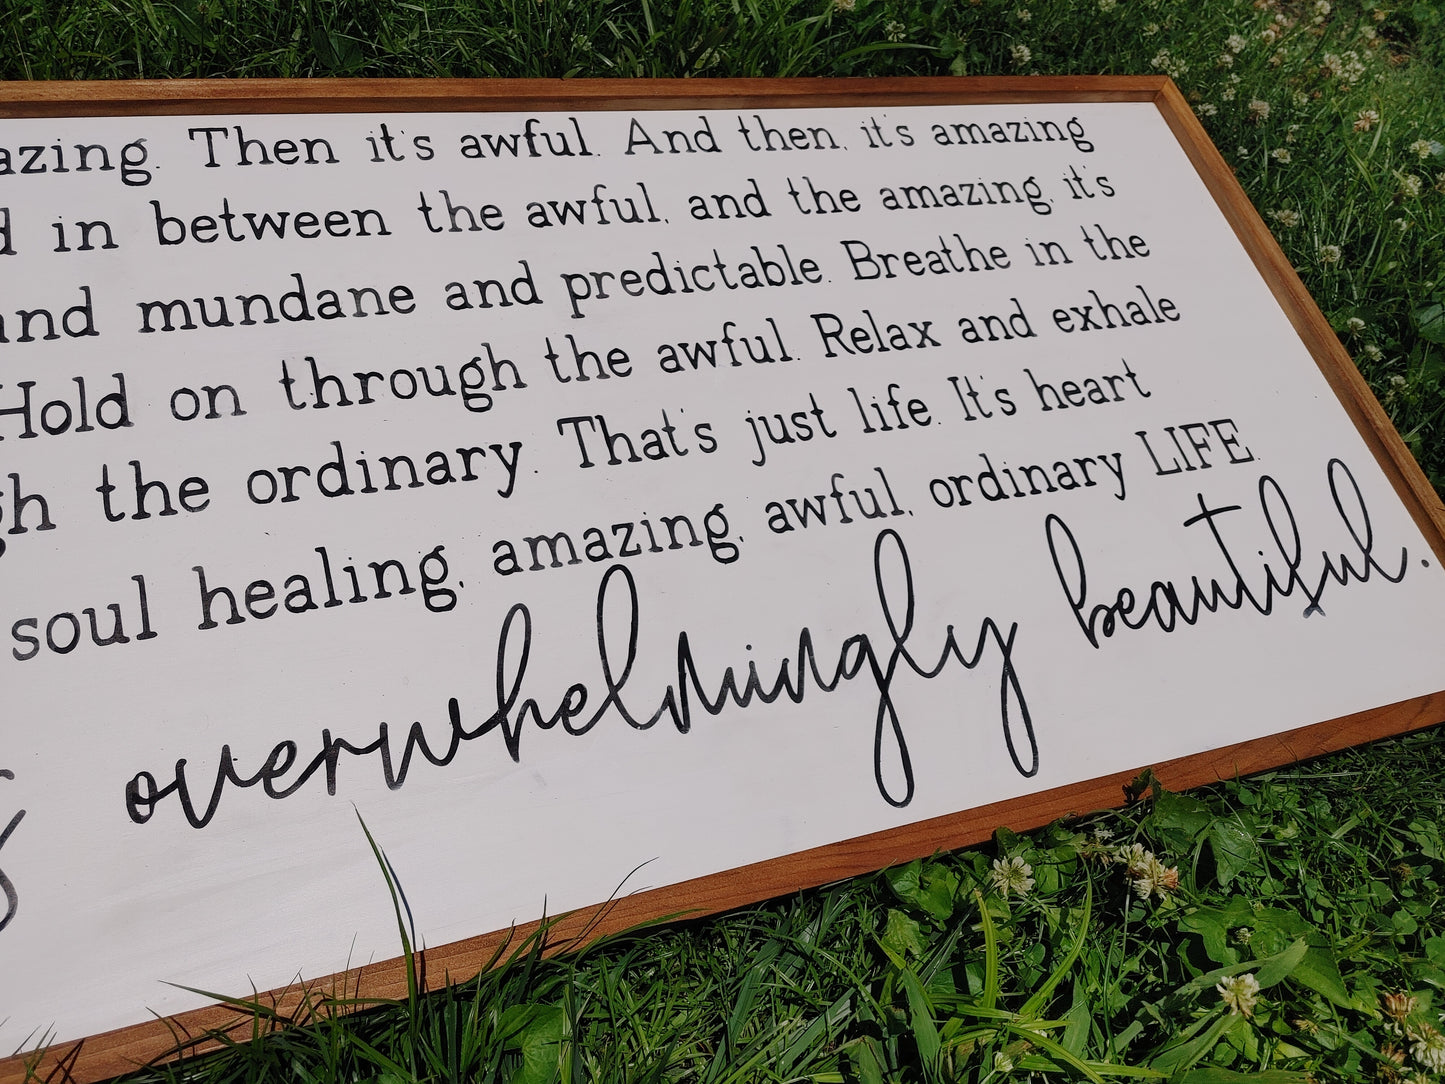 azing. Then it's awful. And then, it's amazing
d in between the awful, and the amazing, it's
and mundane and predictable. Breathe in the
Hold on through the awful. Relax and exhale
gh the ordinary. That's just life. It's heart
soul healing, amazing, awful, ordinary LIFE.
overwhelmingly beautiful.